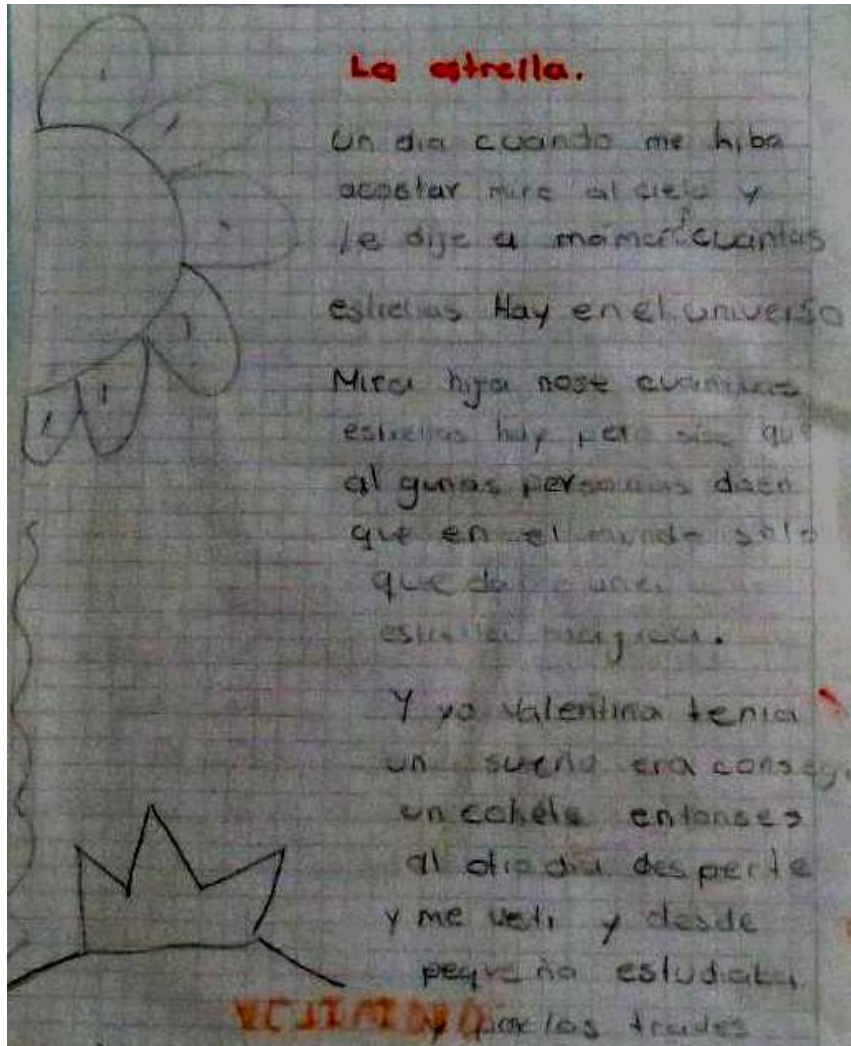 La estrella.
Un dia cuando me hiba
acostar mire al cielo y
le dije a mamá ¿cuantas
estrellas Hay en el universo
Mira hija nose cuantas
estrellas hay pero sise que
algunas personas dicen
que en el mundo solo
queda una
estrella magica.
Y yo Valentina tenia
un sueño era
un cohete entonses
al otro dia desperte
y me vesti y desde
pequeña estudiaba
por las trades